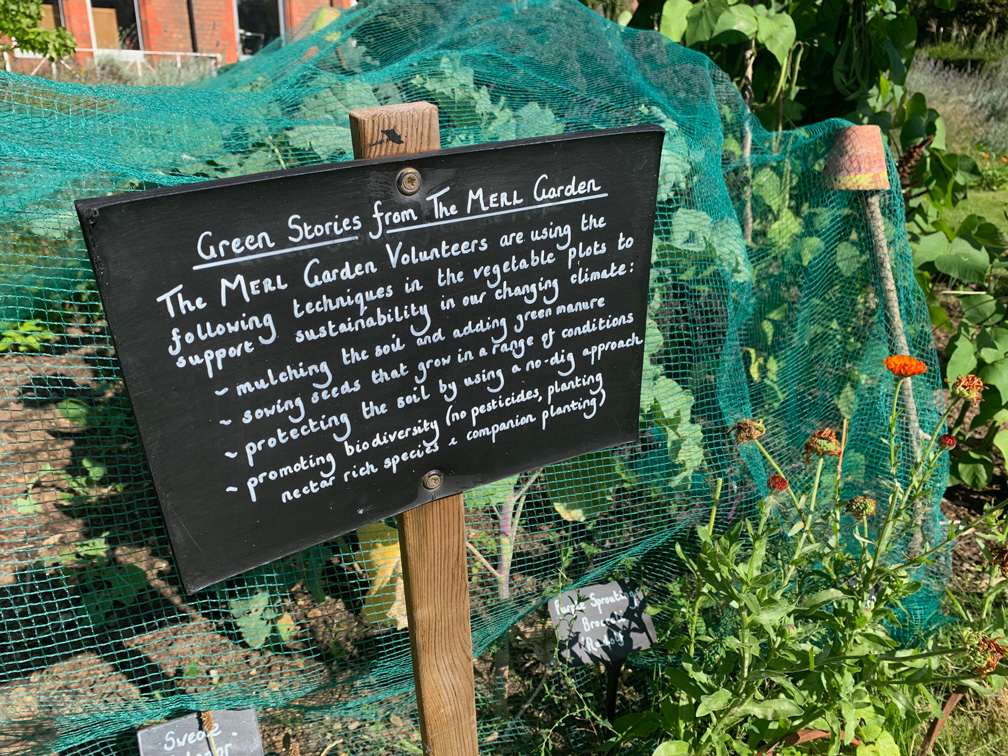 Green Stories from The MERL Garden
The MERL Garden Volunteers are using the
following techniques in the vegetable plots to
support sustainability in our changing climate:
~ mulching the soil and adding green manure
~ sowing seeds that grow in a range of conditions
~ protecting the soil by using a no-dig approach
~ promoting biodiversity (no pesticides, planting
nectar rich species & companion planting)
Purple Sprouti
Brocco
Swede